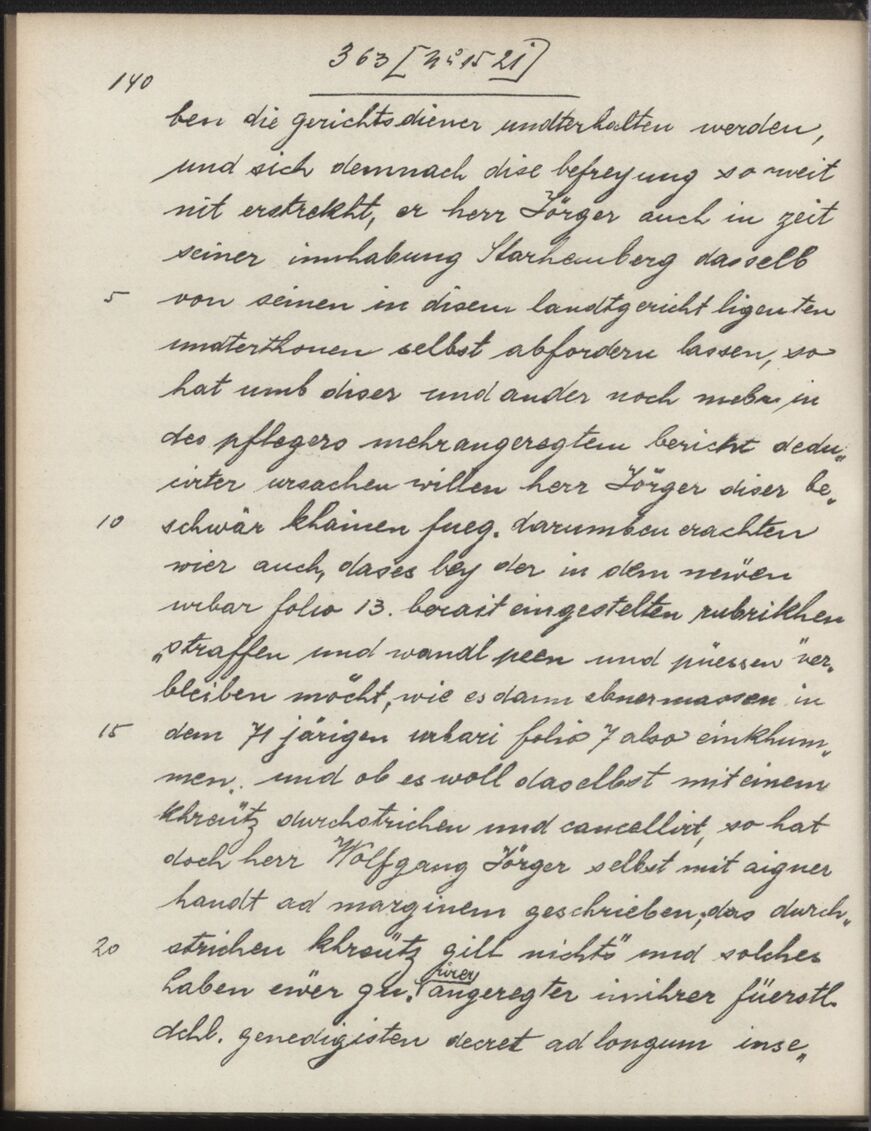 363 [No 15 21]
140
ben die gerichtsdiener undterhalten werden,
und sich demnach dise befreyung so weit
nit erstrekht, er herr Jörger auch in zeit
seiner innhabung Starhemberg dasselb
5 von seinen in disem landtgericht ligenten
undterthonen selbst abfordern lassen, so
hat umb diser und ander noch mehr in
des pflegers mehrangeregtem bericht dedu„
cirter ursachen willen herr Jörger diser be„
10 schwär khainen fueg. darumben erachten
wier auch, dases bey der in dem newen
urbar folio 13. berait eingestelten rubrikhen
„straffen und wandl peen und püessen" ver„
bleiben möcht, wie es dann ebnermassen in
15 dem 71 järigen urbari folio 7 also einkhum„
men. und ob es woll daselbst mit einem
khreütz durchstrichen und cancellirt, so hat
doch herr Wolfgang Jörger selbst mit aigner
handt ad marginem geschrieben „das durch„
20 strichen khreütz gilt nichts" und solches
haben ewer gn. angeregter in ihrer füerstl.
dchl. genedigisten decret ad longum inse„